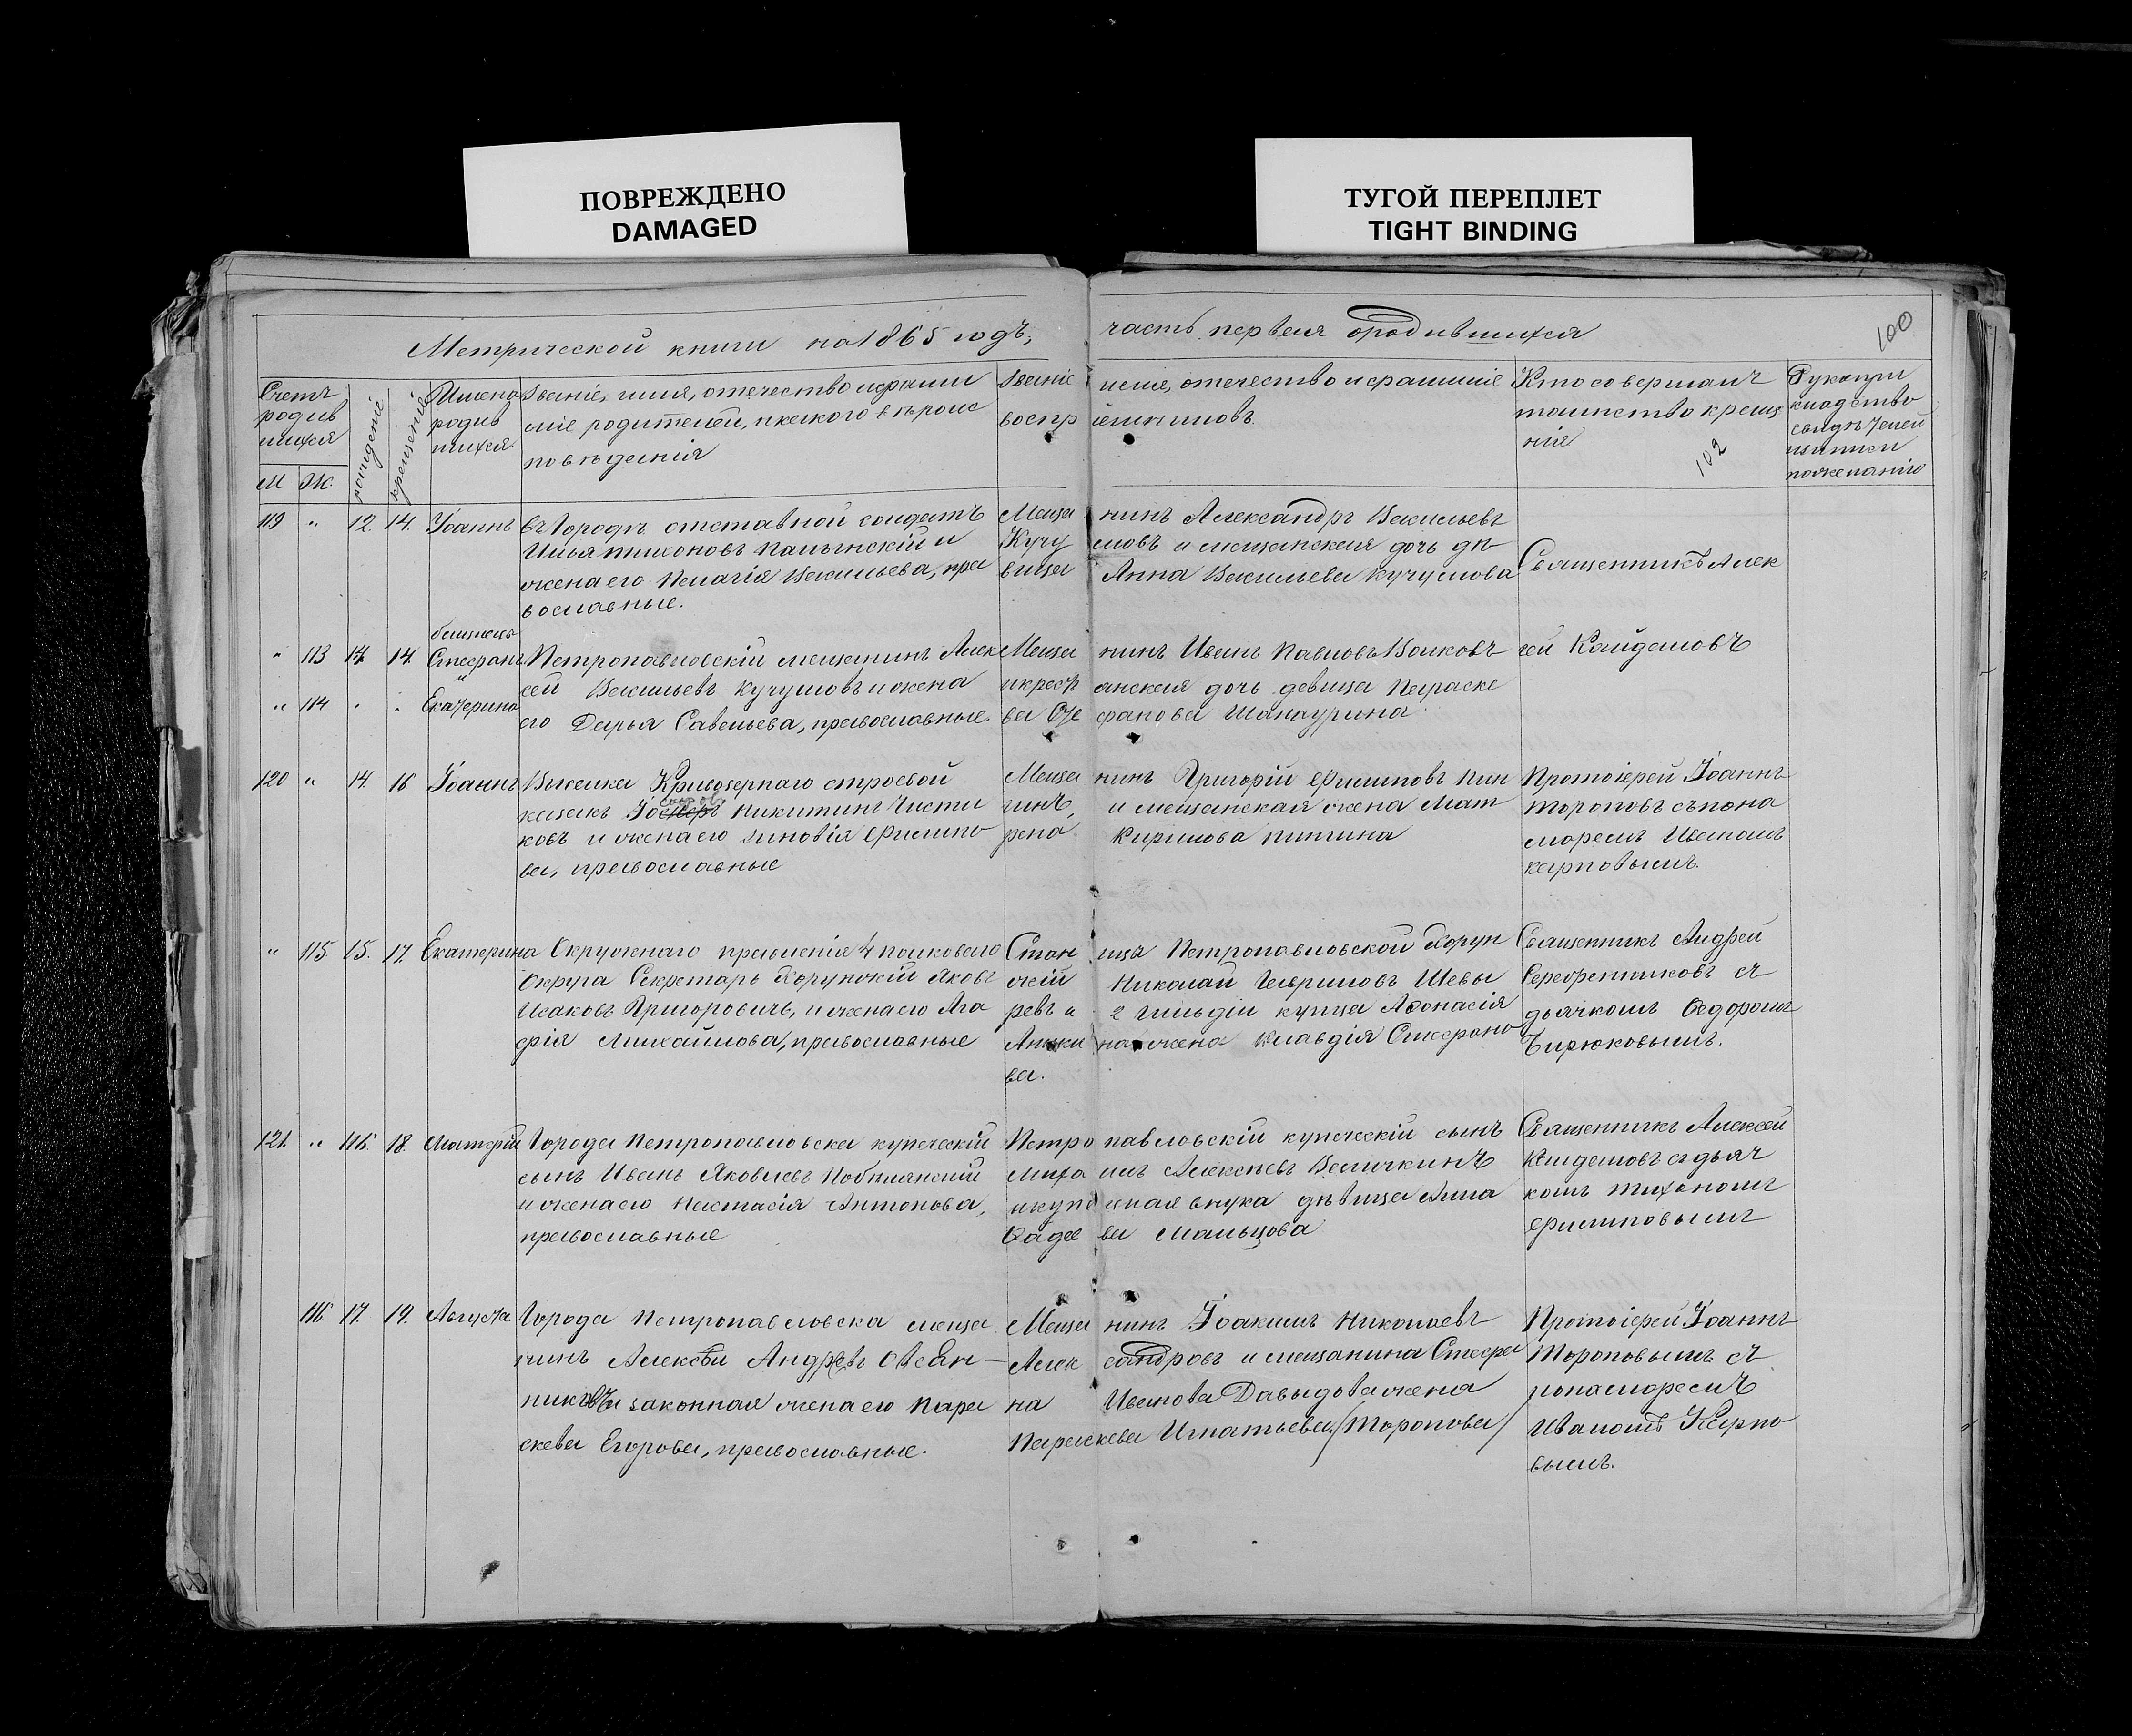 ПОВРЕЖДЕНО
DAMAGED
ТУГОЙ ПЕРЕПЛЕТ
TIGHT BINDING
Метрической книги на 1865 годъ, часть первая ородившихся
100
Счетъ родив шихся
М Ж.
рожденiе
крещенiе
Имена родив шихся.
Званiе, имя, отечество и фами
лiе родителей, и какого вѣроис
повѣданiя
Званiе имя, отечество и фамилiе
воспр iемниковъ.
Кто совершалъ
таинство креще
нiя
102
Рукопри
кладство
свидѣтелей
записи
пожеланiю
119 " 12. 14. Iоаннъ
въ Городѣ отставной солдатъ
Илья тихоновъ Калынскiй и
жена его Пелагiя Васильева, пра
вославные.
Меща нинъ Александръ Васильевъ
Кучу мовъ и мещанская дочь дѣ
вица Анна Васильева Кучумова
Священникъ Алек
сѣй Кайдаловъ
" 113 14. 14. близнецы Стефанъ
" 114 " " Екатерина
Петропавловскiй мещанинъ Алек
сей Васильевъ Кучумовъ и жена
его Дарья Савельева, православные.
Меща нинъ Иванъ Павловъ Волковъ
и крестр анская дочь девица Параске
ва Сте фанова Шанаурина
120 " 14. 16 Iоаннъ
Выселка Кривозернаго строевой
казакъ Никитинъ Чисти
ковъ и жена его Зиновiя Филипо
ва, православные
Меща нинъ Григорiй Филиповъ Пин
гинъ, и мещанская жена Мат
рена Кирилова пигина
Протоiерей Iоаннъ
Тороповъ съ пона
маремъ Иваномъ
Карповымъ.
" 115. 15. 17. Екатерина
Окружнаго правленiя 4 полковаго
Округа Секретарь Хорунжiй Яковъ
Исаковъ Григоровичь, и жена его Ага
фiя Михайлова, православные
Стан ица Петропавловской Хорун
жiй Николай Гавриловъ Шевы
ревъ и 2 гильдiи купца Афонасiя
Аники на жена Клавдiя Стефано
ва.
Священникъ Андрей
Серебренниковъ съ
дьячкомъ Федоромъ
Бирюковымъ.
121. " 18.
Города Петропавловска купеческiй
сынъ Иванъ Яковлевъ
и жена его Настасiя Антонова,
православные
Петро павловскiй купеческiй сынъ
Миха илъ Алексѣевъ Величкинъ
и купе ческая внука дѣвица Анна
Фаде ва Мальцова
Священникъ Алексей
Кайдаловъ съ дьяч
комъ Тихономъ
Филиповымъ
116. 17. 19. Августа
Города Петропавловска меща
нинъ Алексѣй Андреевъ Овсян-
никовъ и законная жена его Пара
скева Егорова, православные.
Меща нинъ Iоакимъ Николаевъ
Алек сандровъ и мещанина Стефа
на Иванова Давыдова жена
Параскева Игнатьева /Торопова/
Протоiерей Iоаннъ
Тороповымъ съ
понамаремъ
Иваномъ Карпо
вымъ.